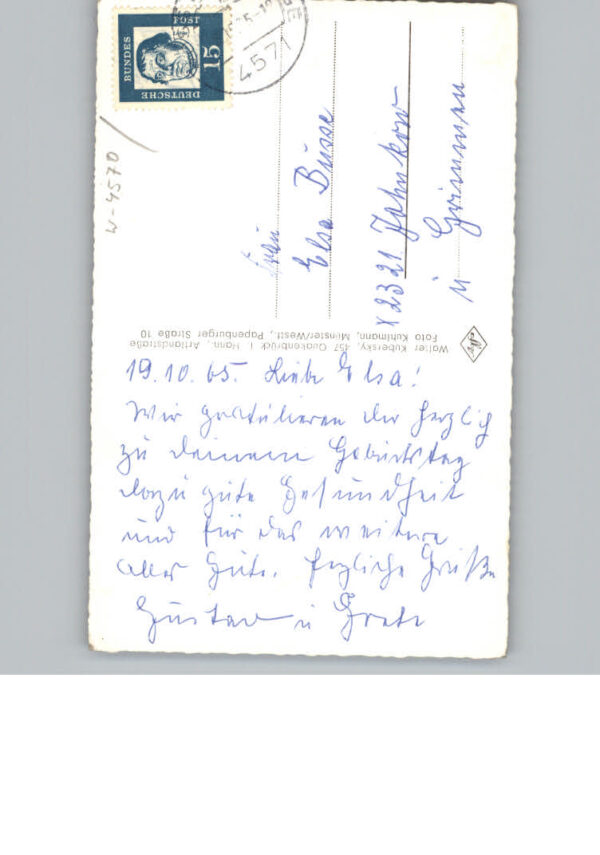 19.10.65. Liebe Elsa!
Wir gratulieren dir herzlich
zu deinem Geburtstag
dazu gute Gesundheit
und für das weitere
alles Gute. Herzliche Grüße
Gustav u Grete
Frau
Elsa Busse
X2321 Jahnkow
ü Grimmen
Walter Kubersky, 457 Quakenbrück i. Hann., Artlandstraße
Foto Kuhlmann, Münster/Westf., Papenburger Straße 10
W-4570
DEUTSCHE
BUNDES
POST
15
4571